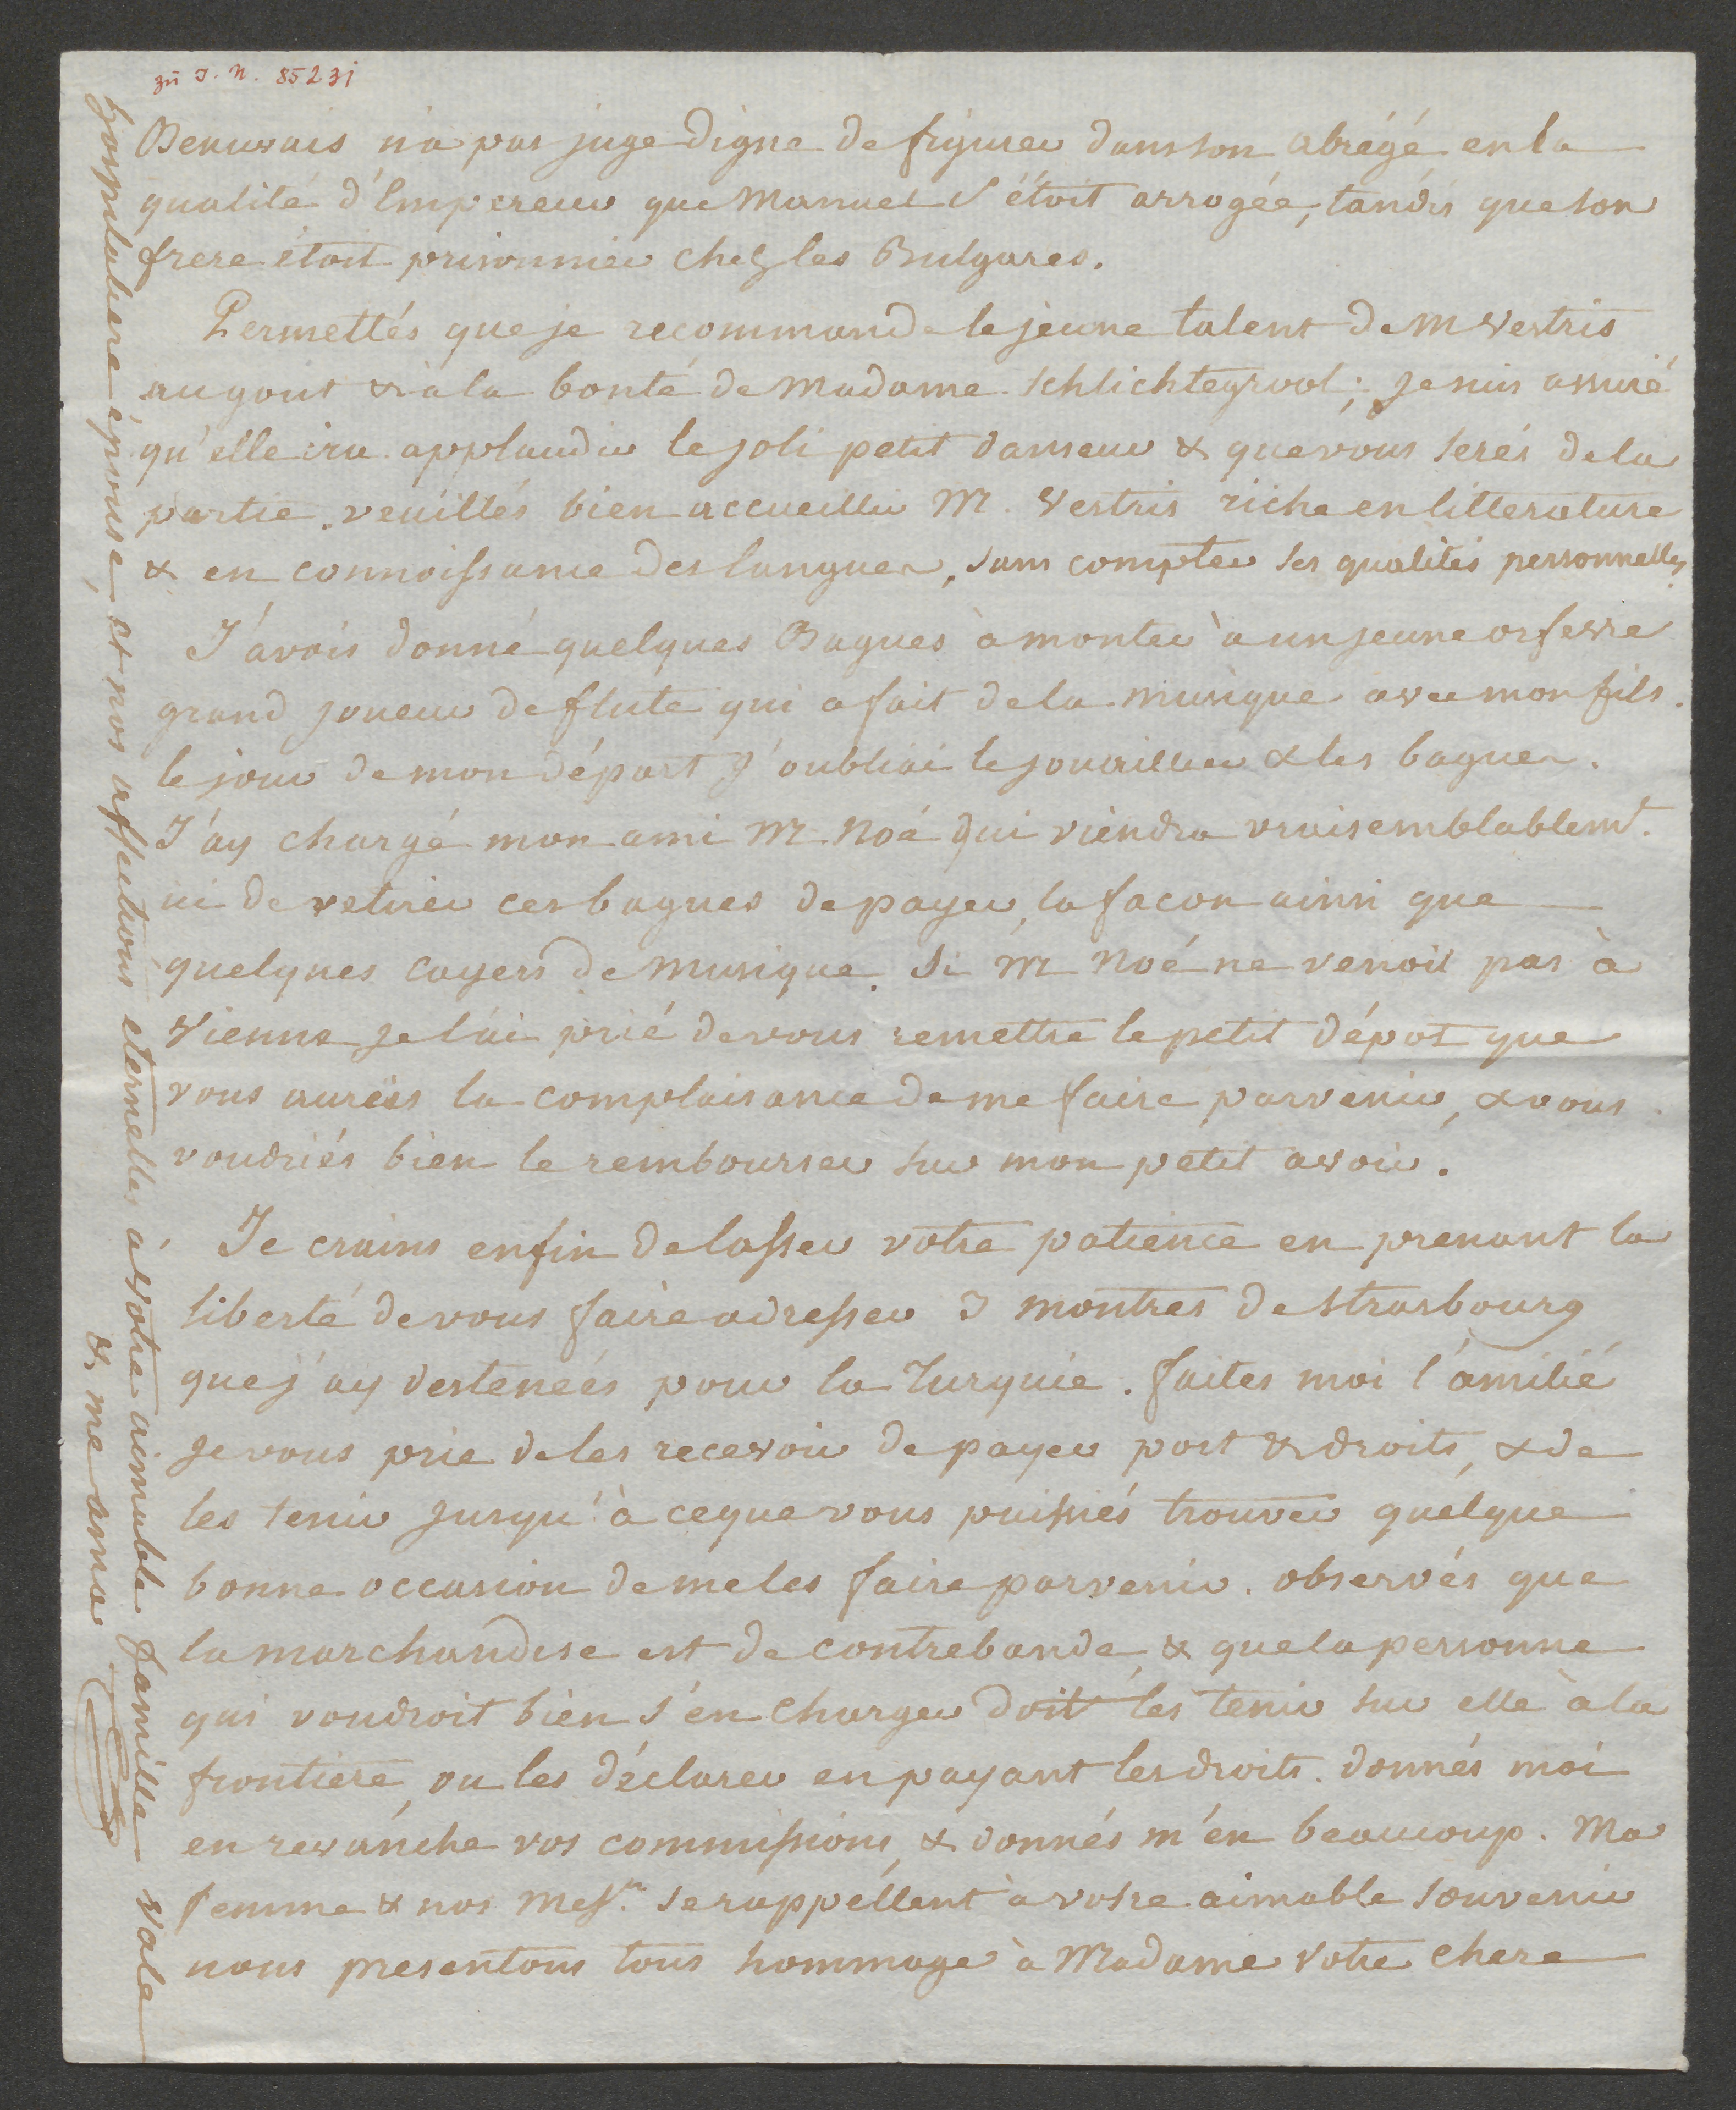 zu I. N. 85231
Beauvais n'a pas jugé digne de figurer dans son abrégé en la
qualité d'Empereur que Manuel s'étoit arrogée, tandis que son
frere étoit prisonnier chez les Bulgares.
Permettés que je recommande le jeune talent de M Vestris
au gout & à la bonté de Madame Schlichtegrool; je suis assuré
qu'elle ira applaudir le joli petit danseur & que vous serés de la
partie. veuillés bien accueillir M. Vestris riche en litterature
& en connoissance des langues, sans compter ses qualités personnelles
J'avois donné quelques Bagues à monter à un jeune orfevre
grand joueur de flute qui a fait de la musique avec mon fils.
le jour de mon départ j'oubliai le jouaillier & les bagues.
J'ay chargé mon ami M. Noé qui viendra vraisemblablemt.
ici de retirer ces bagues de payer la facon ainsi que
quelques cayers de musique. Si M Noé ne venoit pas à
Vienne je l'ai prié de vous remettre le petit dépot que
vous aurées la complaisance de me faire parvenir, & vous
voudriés bien le rembourser sur mon petit avoir.
Je crains enfin de lasser votre patience en prenant la
liberté de vous faire adresser 3 montres de Strasbourg
que j'ay destenées pour la Turquie. faites moi l'amitié
je vous prie de les recevoir de payer port & droits, & de
les tenir jusqu'à ce que vous puissiés trouver quelque
bonne occasion de me les faire parvenir. observés que
la marchandise est de contrebande & que la personne
qui voudroit bien s'en charger doit les tenir sur elle à la
frontiere, ou les déclarer en payant les droits. donnés moi
en revanche vos commissions, & donnés m'en beaucoup. Ma
femme & nos Mess.rs se rappellent à votre aimable souvenir
nous presentons tous hommage à Madame votre chere
hospitaliere épouse, et nos affections eternelles à votre aimable famille Vale
& me ama